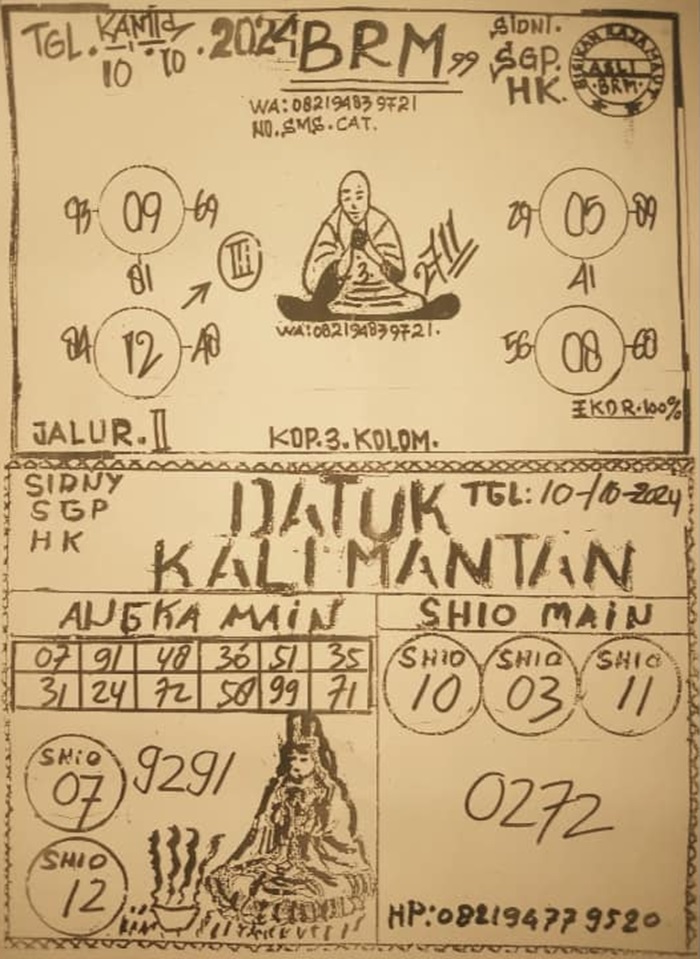 TGL. KAMIS
10 · 10 · 2024
BRM 99
SIDNI.
SGP.
HK.
BISIKAN RAJA MAUT
ASLI
·BRM·
WA: 082194839721
NO. SMS. CAT.
93 09 69
81
29 05 89
41
III
3.
2711
84 12 48
WA: 082194839721.
56 08 60
EKOR. 100%
JALUR. II
KOP. 3. KOLOM.
SIDNY
SGP
HK
DATUK
KALIMANTAN
TGL: 10-/10-2024
ANGKA MAIN
SHIO MAIN
07 91 48 36 51 35
31 24 72 58 99 71
SHIO 10
SHIO 03
SHIO 11
SHIO 07
9291
0272
SHIO 12
HP: 082194779520